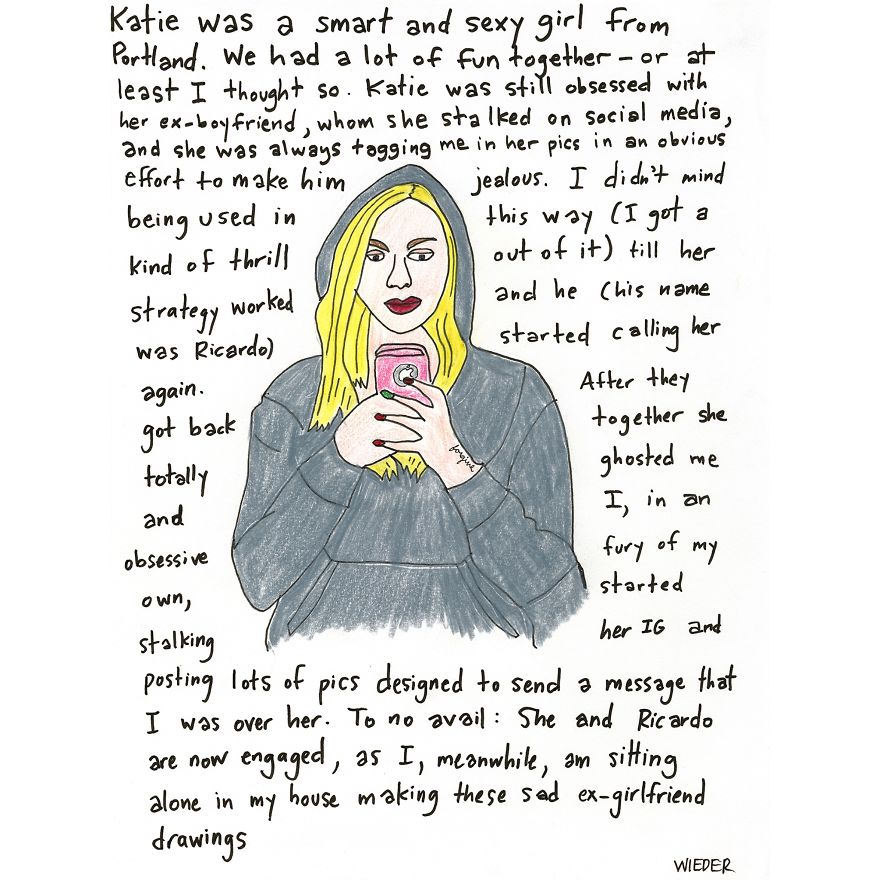 Katie was a smart and sexy girl from
Portland. We had a lot of fun together – or at
least I thought so. Katie was still obsessed with
her ex-boyfriend, whom she stalked on social media,
and she was always tagging me in her pics in an obvious
effort to make him jealous. I didn't mind
being used in this way (I got a
kind of thrill out of it) till her
strategy worked and he (his name
was Ricardo) started calling her
again. After they
got back together she
totally ghosted me
and I, in an
obsessive fury of my
own, started
stalking her IG and
posting lots of pics designed to send a message that
I was over her. To no avail: She and Ricardo
are now engaged, as I, meanwhile, am sitting
alone in my house making these sad ex-girlfriend
drawings
forgive
WIEDER